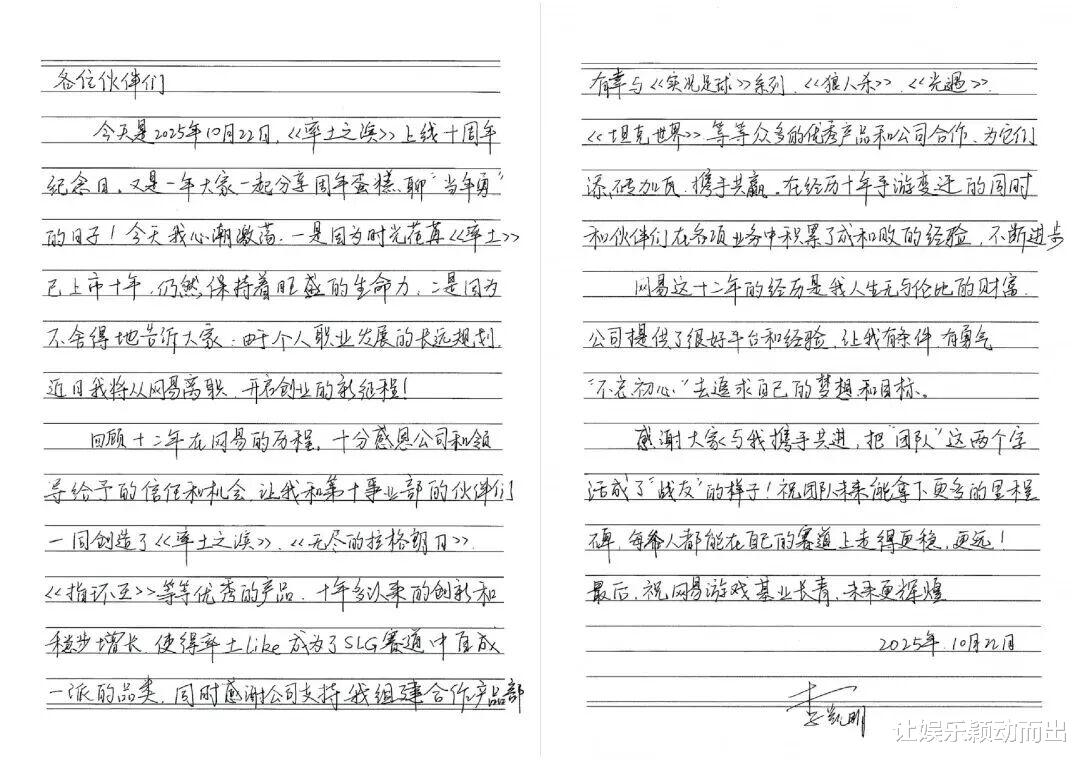 各位伙伴们
今天是2025年10月22日，《率土之滨》上线十周年
纪念日，又是一年大家一起分享周年蛋糕、聊“当年勇”
的日子！今天我心潮激荡，一是因为时光荏苒《率土》
已上市十年，仍然保持着旺盛的生命力，二是因为
不舍得地告诉大家：由于个人职业发展的长远规划，
近日我将从网易离职，开启创业的新征程！
回顾十二年在网易的历程，十分感恩公司和领
导给予的信任和机会，让我和第十事业部的伙伴们
一同创造了《率土之滨》、《无尽的拉格朗日》、
《指环王》等等优秀的产品，十年多以来的创新和
稳步增长，使得率土like成为了SLG赛道中自成
一派的品类，同时感谢公司支持我组建合作产品部
有幸与《实况足球》系列、《狼人杀》、《光遇》、
《坦克世界》等等众多的优秀产品和公司合作，为它们
添砖加瓦，携手共赢。在经历十年手游变迁的同时
和伙伴们在各项业务中积累了成和败的经验，不断进步
网易这十二年的经历是我人生无与伦比的财富，
公司提供了很好平台和经验，让我有条件，有勇气
“不忘初心”去追求自己的梦想和目标。
感谢大家与我携手共进，把“团队”这两个字
活成了“战友”的样子！祝团队未来能拿下更多的里程
碑，每个人都能在自己的赛道上走得更稳，更远！
最后，祝网易游戏基业长青，未来更辉煌
2025年10月22日
李凯明
让娱乐颖动而出